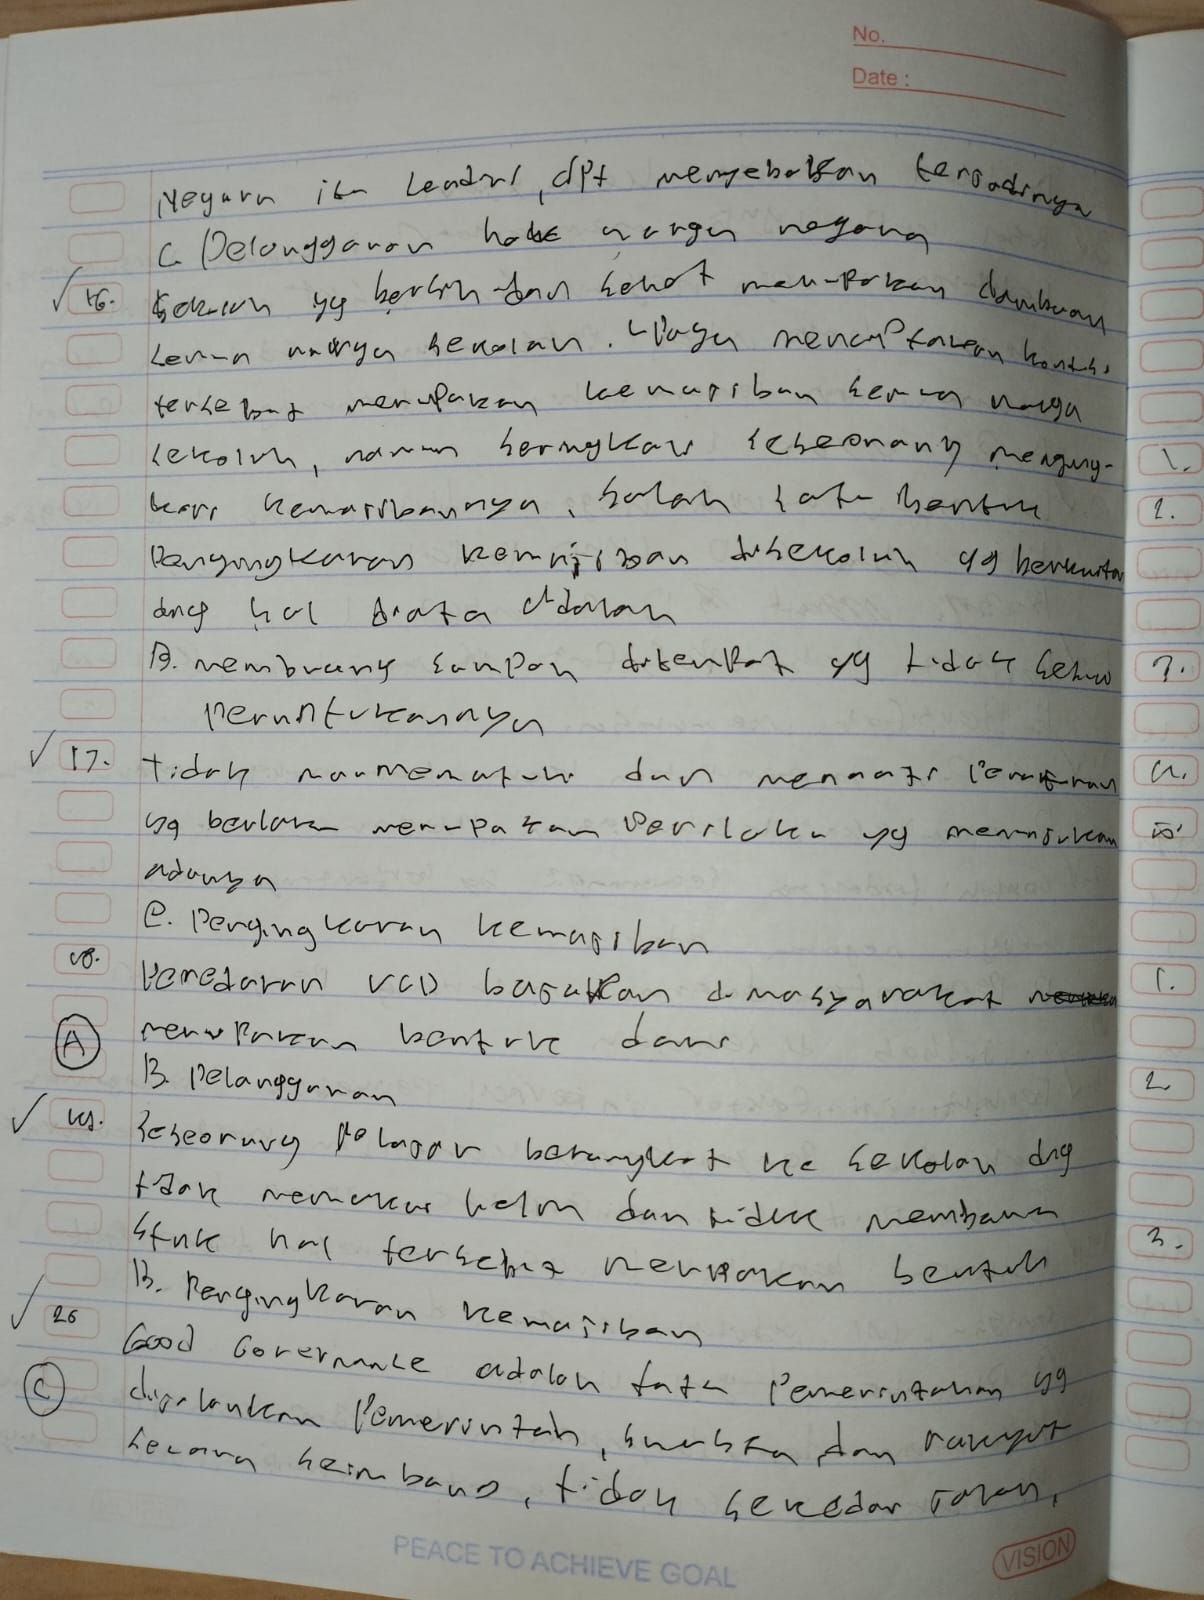 No.
Date :
Negara itu sendiri, dpt menyebabkan terjadinya
C. Pelanggaran hak warga negara
16. Sekolah yg bersih dan sehat merupakan dambaan
semua warga sekolah. Upaya menciptakan kondisi
tersebut merupakan kewajiban semua warga
sekolah, namun seringkali seseorang menging-
kari kewajibannya, salah satu bentuk
Pengingkaran kewajiban disekolah yg berkaitan
dng hal diatas adalah
B. membuang sampah ditempat yg tidak sesuai
peruntukannya
17. tidak mau mematuhi dan menaati Peraturan
yg berlaku merupakan Perilaku yg menunjukan
adanya
C. Pengingkaran kewajiban
18. Peredaran VCD bajakan dimasyarakat
merupakan bentuk dari
A
B. Pelanggaran
19. Seseorang Pelajar berangkat ke sekolah dng
tidak memakai helm dan tidak membawa
Stnk hal tersebut merupakan bentuk
B. Pengingkaran kewajiban
20 Good Governance adalah tata Pemerintahan yg
C dijalankan Pemerintah, swasta dan rakyat
secara seimbang, tidak sekedar jalan,
PEACE TO ACHIEVE GOAL
VISION
1.
2.
3.
4.
5.
1.
2.
3.